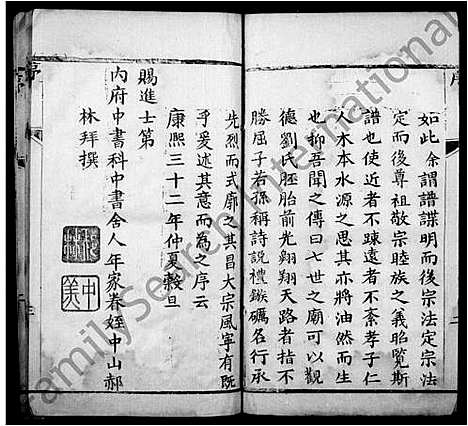 如此余謂譜諜明而後宗法定宗法
定而後尊祖敬宗睦族之義昭覽斯
譜也使近者不踈遠者不紊孝子仁
人木本水源之思其亦將油然而生
也抑吾聞之傳曰七世之廟可以觀
德劉氏胚胎前光翱翔天路者指不
勝屈子若孫稱詩説禮鏃礪名行承
先烈而式廓之其昌大宗風寧有既
乎爰述其意而為之序云
康熙三十二年仲夏穀旦
賜進士第
内府中書科中書舍人年家眷姪中山郝
林拜撰
序
三
二
FamilySearch International